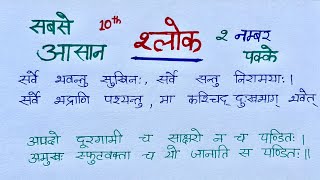 सबसे 10th श्लोक २ नम्बर
आसान पक्के
सर्वे भवन्तु सुखिनः, सर्वे सन्तु निरामयाः।
सर्वे भद्राणि पश्यन्तु, मा कश्चिद् दुःखभाग् भवेत्
अपदो दूरगामी च साक्षरो न च पण्डितः।
अमुखः स्फुटवक्ता च यो जानाति स पण्डितः॥